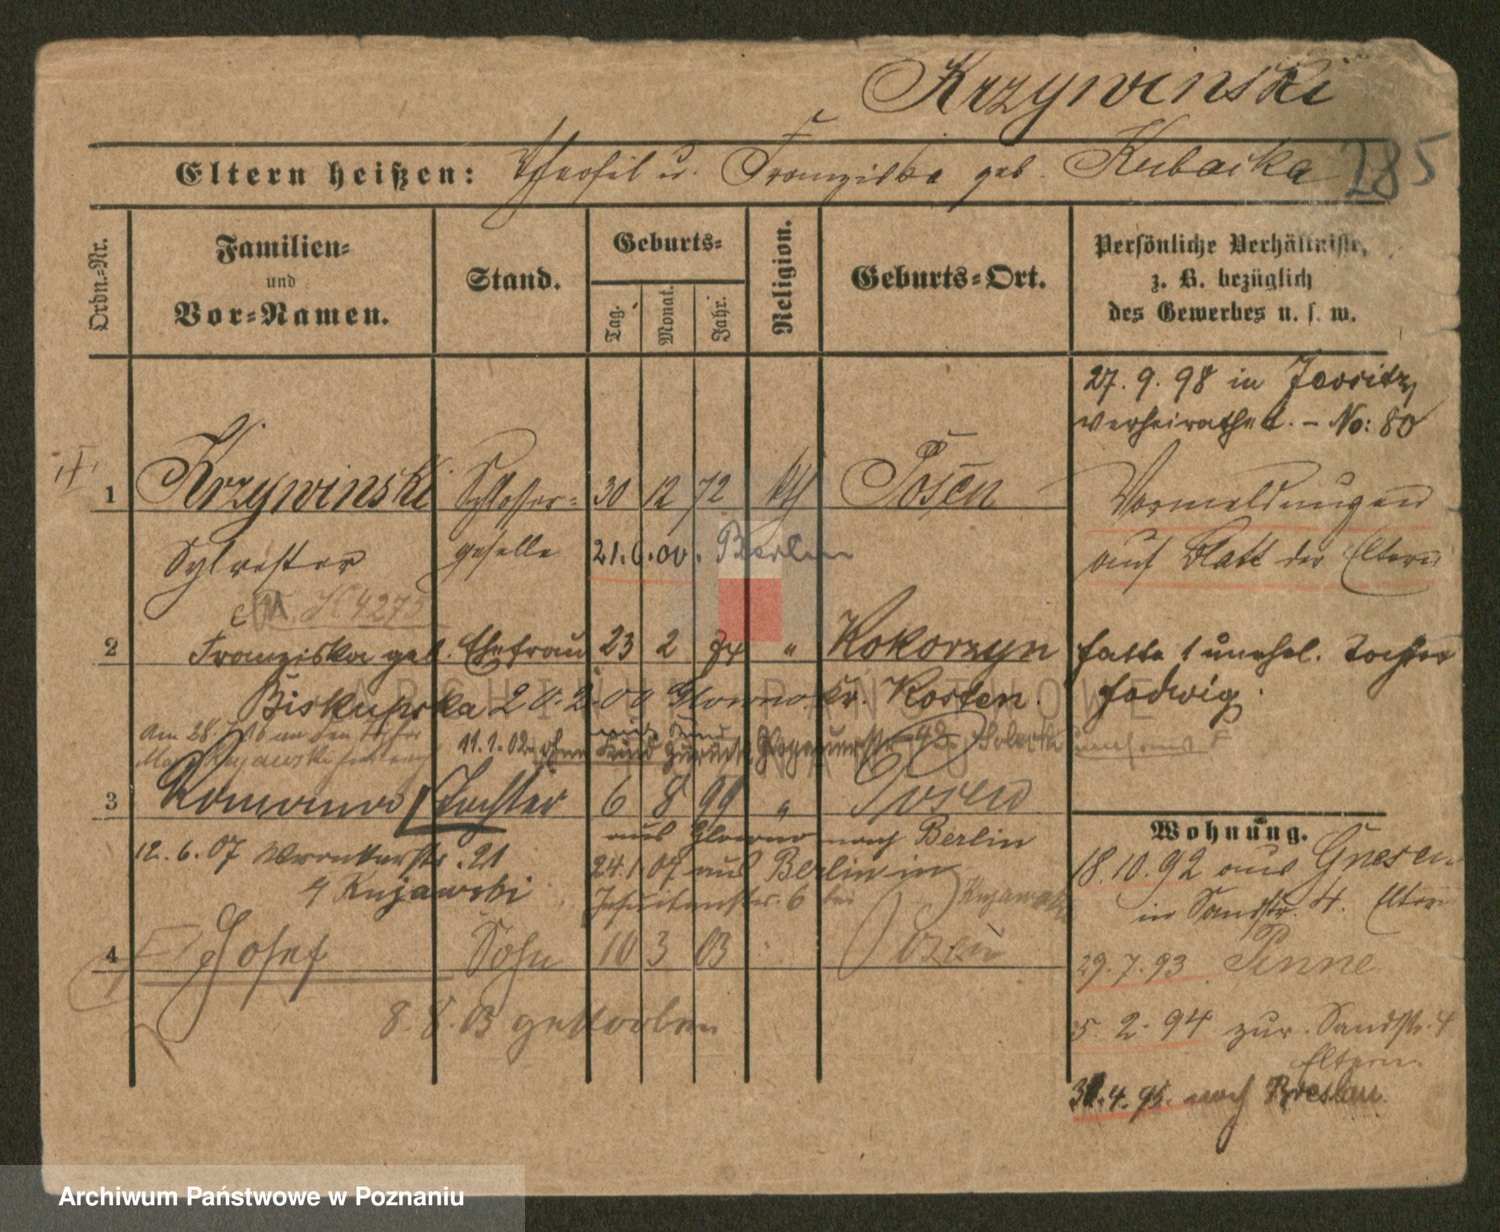 Krzywinski
Eltern heißen: Theofil u. Franziska geb. Kubacka 285
Ordn.-Nr.
Familien-
und
Vor-Namen.
Stand.
Geburts-
Tag.
Monat.
Jahr.
Religion.
Geburts-Ort.
Persönliche Verhältnisse,
z. B. bezüglich
des Gewerbes u. s. w.
27. 9. 98 in
verheirathet. – No: 80
1 Krzywinski Schlosser- 30 12 72 kth Posen
Vormeldungen
Sylvester geselle 21. 6. 00. Berlin
auf Blatt der Eltern
K 4275
2 Franziska geb. Ehefrau 23 2 " Kokorzyn
hatte 1 unehel. Tochter
Biskupska 20. 2. 00 Glowno Kr. Kosten.
Hedwig.
Am 28.
11. 1. 02 ohne Kind zurück
3 Romana Tochter 6 8 99 " Posen
aus Glowno nach Berlin
12. 6. 07 Wronkerstr. 21
24. 1. 07 aus Berlin in
Kujawski
Jesuitenstr. 6 bei Kujawski
4 Josef Sohn 10 3 03 Posen
8. 8. 03 gestorben
Wohnung.
18. 10. 92 aus Gnesen
in Sandstr. 4. Eltern
29. 7. 93 Pinne
5. 2. 94 zur. Sandstr. 4
Eltern.
4. 95. nach Breslau.
ARCHIWUM PAŃSTWOWE
W POZNANIU
Archiwum Państwowe w Poznaniu